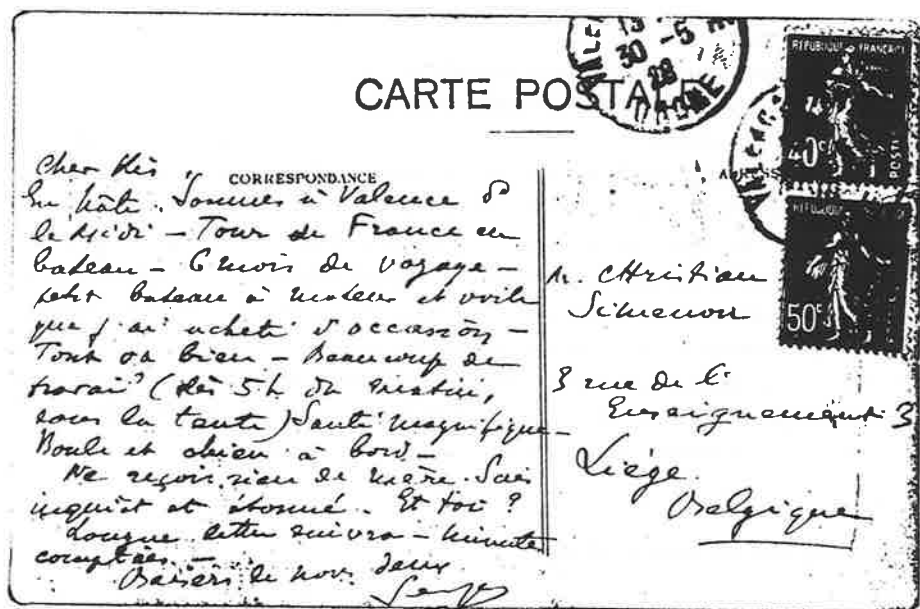 CARTE POSTALE
CORRESPONDANCE
Cher Kris
En hâte. Sommes à Valence &
le Midi – Tour de France en
bateau – 6 mois de voyage –
petit bateau à moteur et voile
que j'ai acheté d'occasion –
Tout va bien – Beaucoup de
travail (dès 5 h. du matin,
sous la tente) Santé magnifique –
Boule et chien à bord –
Ne reçois rien de mère. Suis
inquiet et étonné. Et toi ?
Longue lettre suivra – minutes
comptées –
Baisers de nous deux
30 -5
28
DROME
REPUBLIQUE FRANÇAISE
40c
POSTES
50c
M. Christian
Simenon
3 rue de l'
Enseignement 3
Liège
Belgique